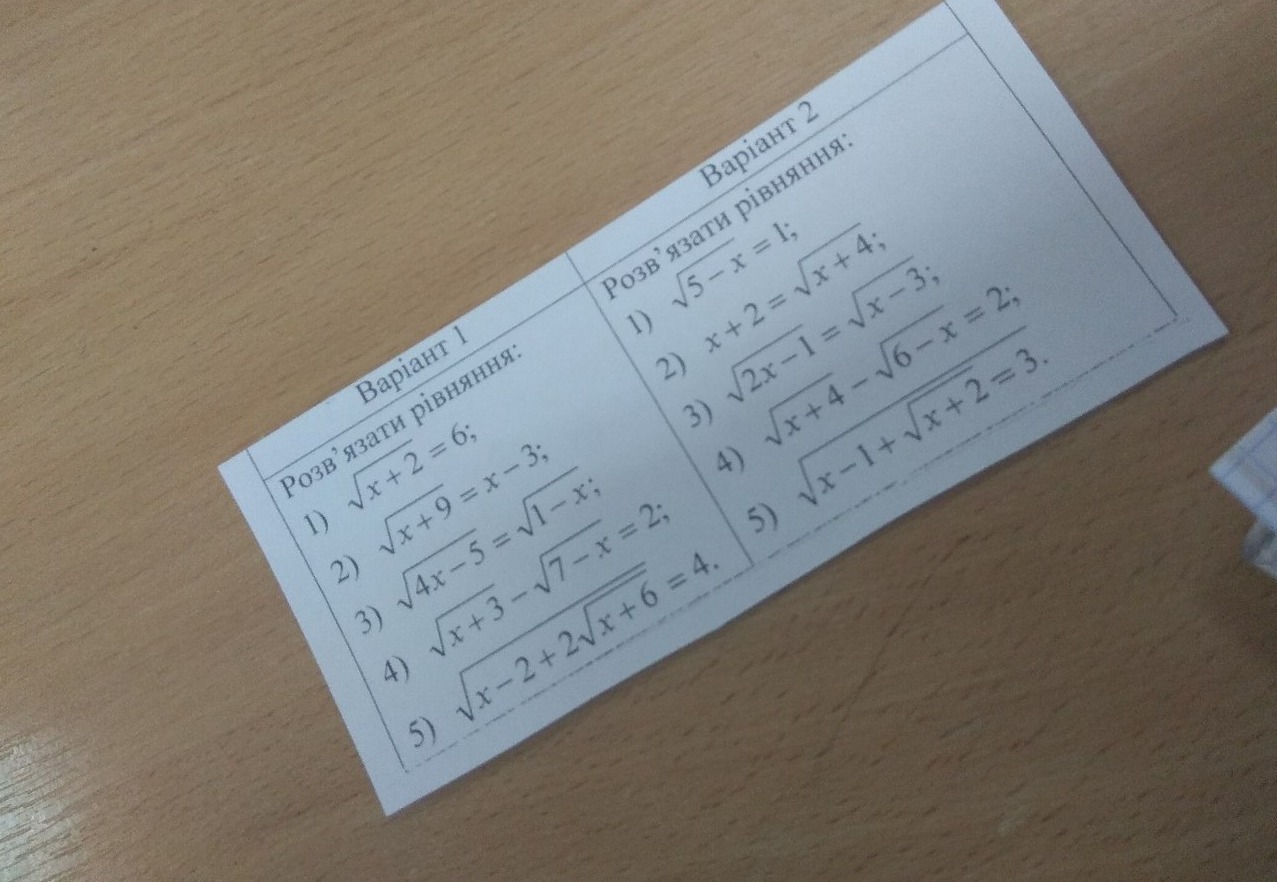 Варіант 1
Розв’язати рівняння:
1) √(x + 2) = 6;
2) √(x + 9) = x − 3;
3) √(4x − 5) = √(1 − x);
4) √(x + 3) − √(7 − x) = 2;
5) √(x − 2 + 2√(x + 6)) = 4.
Варіант 2
Розв’язати рівняння:
1) √(5 − x) = 1;
2) x + 2 = √(x + 4);
3) √(2x − 1) = √(x − 3);
4) √(x + 4) − √(6 − x) = 2;
5) √(x − 1 + √(x + 2)) = 3.